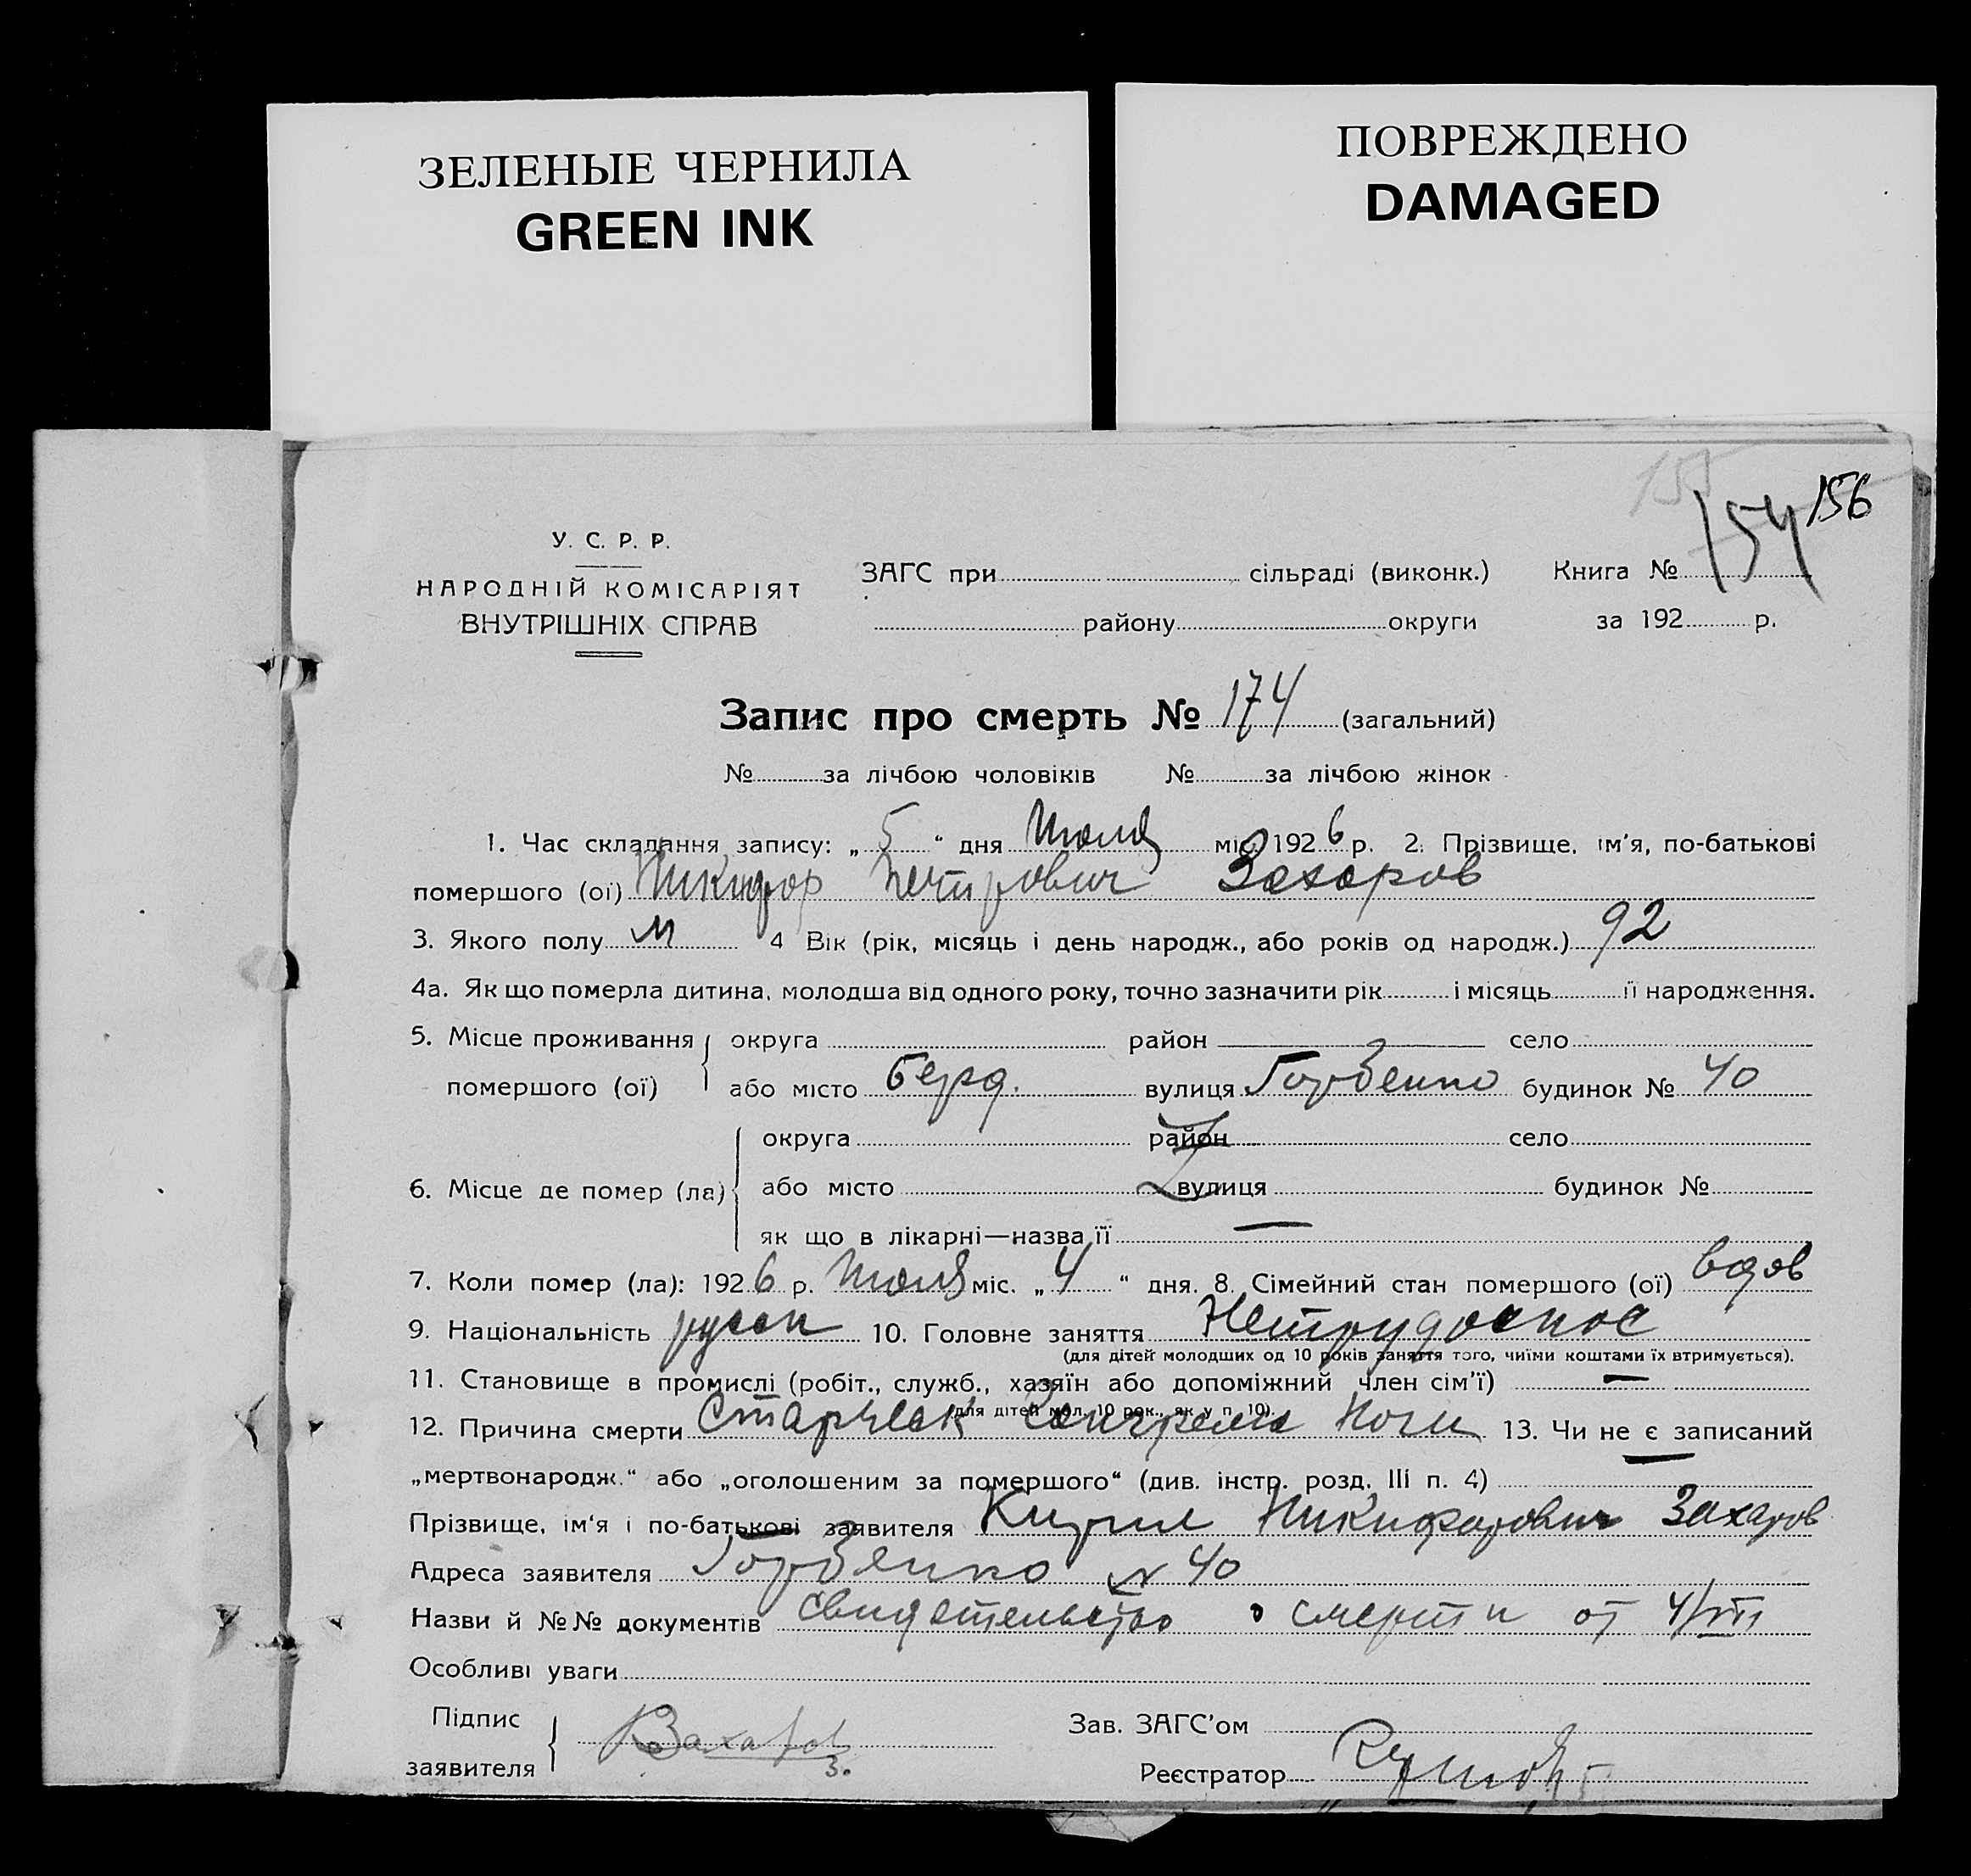 ЗЕЛЕНЫЕ ЧЕРНИЛА
GREEN INK
ПОВРЕЖДЕНО
DAMAGED
155
154 156
У. С. Р. Р.
НАРОДНІЙ КОМІСАРІЯТ
ВНУТРІШНІХ СПРАВ
ЗАГС при сільраді (виконк.) Книга №
району округи за 192 р.
Запис про смерть № 174 (загальний)
№ за лічбою чоловіків № за лічбою жінок
1. Час складання запису: „ 5 “ дня Июля міс. 192 6 р. 2. Прізвище, ім'я, по-батькові
помершого (ої) Никифор Петрович Захаров
3. Якого полу м 4 Вік (рік, місяць і день народж., або років од народж.) 92
4а. Як що померла дитина, молодша від одного року, точно зазначити рік і місяць її народження.
5. Місце проживання округа район село
помершого (ої) або місто Берд. вулиця Горбенко будинок № 40
округа район село
6. Місце де помер (ла) або місто вулиця будинок №
як що в лікарні—назва її —
7. Коли помер (ла): 192 6 р. Июля міс. „ 4 “ дня. 8. Сімейний стан помершого (ої) вдов
9. Національність русск 10. Головне заняття
(для дітей молодших од 10 років заняття того, чиїми коштами їх втримується).
11. Становище в промислі (робіт., служб., хазяїн або допоміжний член сім'ї) —
(для дітей мол. 10 рок., як у п. 10).
12. Причина смерти Старческ Гангрена ноги 13. Чи не є записаний
„мертвонародж.“ або „оголошеним за помершого“ (див. інстр. розд. III п. 4) —
Прізвище, ім'я і по-батькові заявителя Кирил Никифорович Захаров
Адреса заявителя Горбенко № 40
Назви й №№ документів свидетельство о смерти от 4/VII
Особливі уваги
Підпис Зав. ЗАГС'ом
заявителя Захаров
Реєстратор